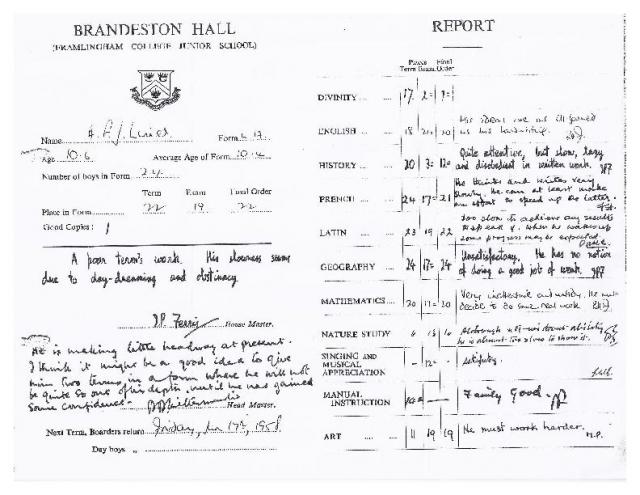 BRANDESTON HALL
(FRAMLINGHAM COLLEGE JUNIOR SCHOOL)
Name
Form
Age 10.6 Average Age of Form 10.4
Number of boys in Form 24
Term Exam Final Order
Place in Form 22 19 22
Good Copies: 1
A poor term's work. His slowness seems
due to day-dreaming and obstinacy.
House Master.
He is making little headway at present.
I think it might be a good idea to give
him two terms in a form where he will not
be quite so out of his depth, until he has gained
some confidence.
Head Master.
Next Term, Boarders return Friday, Jan 17th, 1958
Day boys „
REPORT
Term Exam Final Order
DIVINITY 17 2= 9=
ENGLISH 18 20 His ideas are as ill formed
as his handwriting.
HISTORY 20 3= 12 Quite attentive, but slow, lazy
and disobedient in written work.
FRENCH 24 17= 21 He thinks and writes very
slowly. He can at least make
an effort to speed up the latter.
LATIN 23 19 22 Too slow to achieve any results
some progress may be expected.
GEOGRAPHY 24 17= 24 Unsatisfactory. He has no notion
of doing a good job of work.
MATHEMATICS 20 11= 20 Very
decide to do some real work
NATURE STUDY
he is almost too slow to show it.
SINGING AND
MUSICAL
APPRECIATION - 12= - Satisfactory.
MANUAL
INSTRUCTION Fairly Good.
ART 11 19 19 He must work harder.